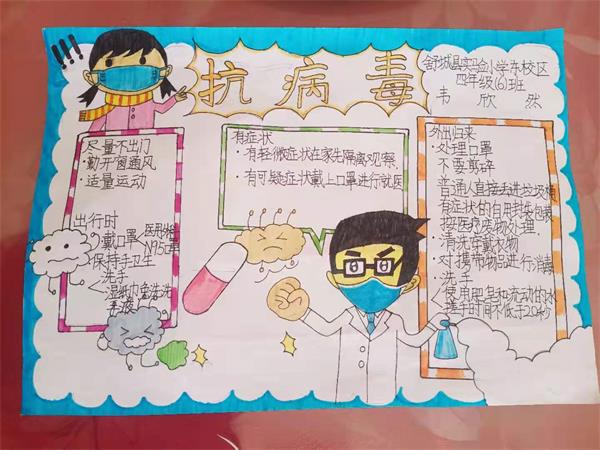 !!!
抗病毒
舒城县实验小学东校区
四年级(6)班
韦欣然
尽量不出门
·勤开窗通风
·适量运动
出行时
·戴口罩<医用外科
N95口罩
·保持手卫生
洗手
有症状
·有轻微症状在家先隔离观察
·有可疑症状戴上口罩进行就医
外出归来
·处理口罩
不要剪碎
普通人直接丢进垃圾桶
有症状的自用封袋包裹
按医疗废物处理
·清洗穿戴衣物
·对携带物品进行消毒
·洗手
使用肥皂和流动的水
搓手时间不低于20秒